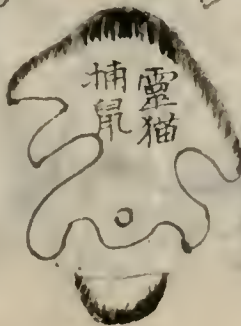 靈猫
捕鼠